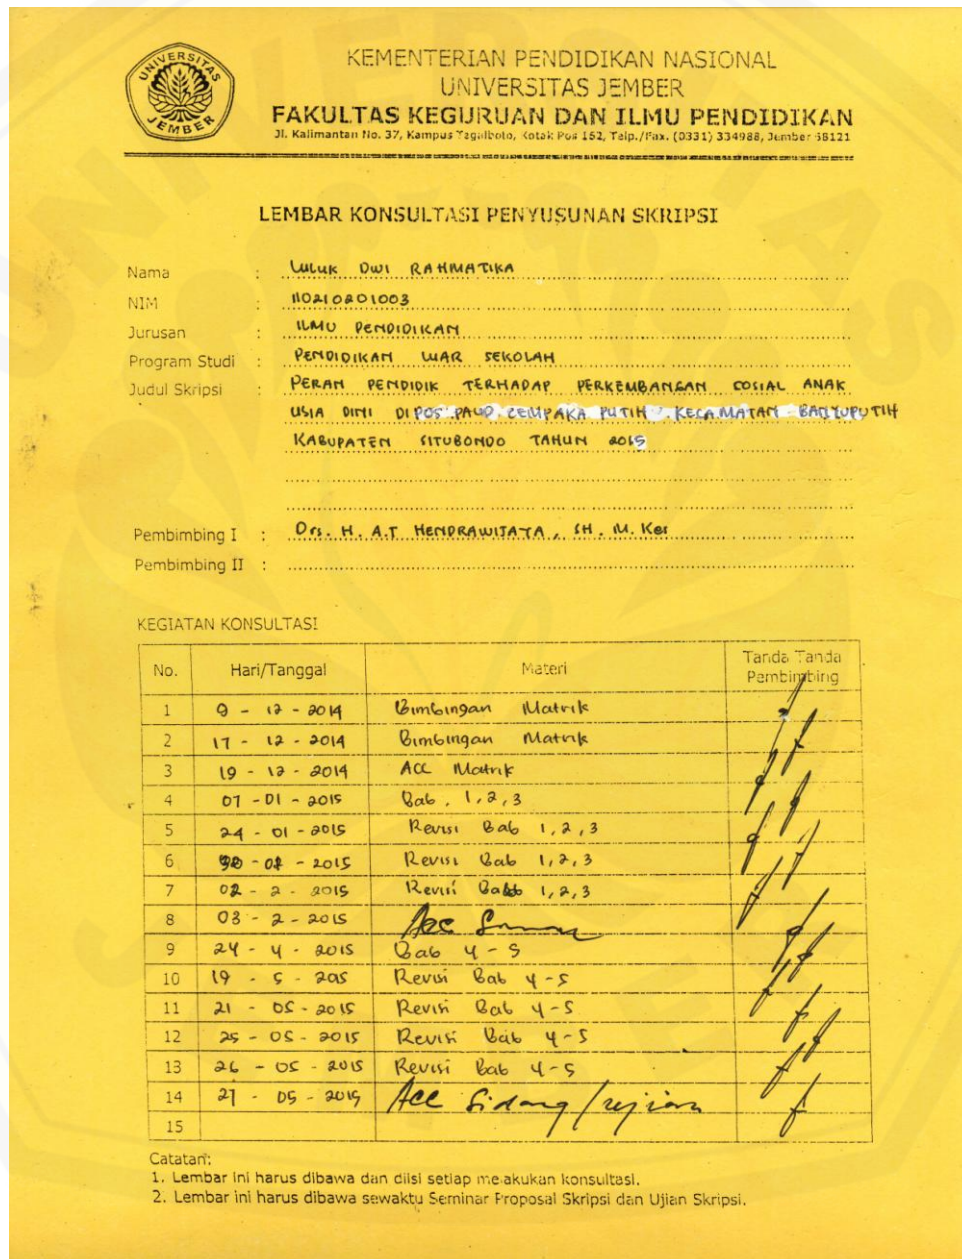 UNIVERSITAS
JEMBER
KEMENTERIAN PENDIDIKAN NASIONAL
UNIVERSITAS JEMBER
FAKULTAS KEGURUAN DAN ILMU PENDIDIKAN
Jl. Kalimantan No. 37, Kampus Tegalboto, Kotak Pos 152, Telp./Fax. (0331) 334988, Jember 68121
LEMBAR KONSULTASI PENYUSUNAN SKRIPSI
Nama : LULUK DWI RAHMATIKA
NIM : 110210201003
Jurusan : ILMU PENDIDIKAN
Program Studi : PENDIDIKAN LUAR SEKOLAH
Judul Skripsi : PERAN PENDIDIK TERHADAP PERKEMBANGAN SOSIAL ANAK
USIA DINI DI POS PAUD CEMPAKA PUTIH KECAMATAN BANYUPUTIH
KABUPATEN SITUBONDO TAHUN 2015
Pembimbing I : Drs. H. A.T HENDRAWIJAYA, SH. M. Kes
Pembimbing II :
KEGIATAN KONSULTASI
No. Hari/Tanggal Materi Tanda Tanda Pembimbing
1 9 - 12 - 2014 Bimbingan Matrik
2 17 - 12 - 2014 Bimbingan Matrik
3 19 - 12 - 2014 ACC Matrik
4 07 - 01 - 2015 Bab. 1,2,3
5 24 - 01 - 2015 Revisi Bab 1,2,3
6 - 2015 Revisi Bab 1,2,3
7 02 - 2 - 2015 Revisi Bab 1,2,3
8 03 - 2 - 2015 Acc
9 24 - 4 - 2015 Bab 4-5
10 19 - 5 - 205 Revisi Bab 4-5
11 21 - 05 - 2015 Revisi Bab 4-5
12 25 - 05 - 2015 Revisi Bab 4-5
13 26 - 05 - 2015 Revisi Bab 4-5
14 27 - 05 - 2015 ACC Sidang/ujian
15
Catatan:
1. Lembar ini harus dibawa dan diisi setiap melakukan konsultasi.
2. Lembar ini harus dibawa sewaktu Seminar Proposal Skripsi dan Ujian Skripsi.